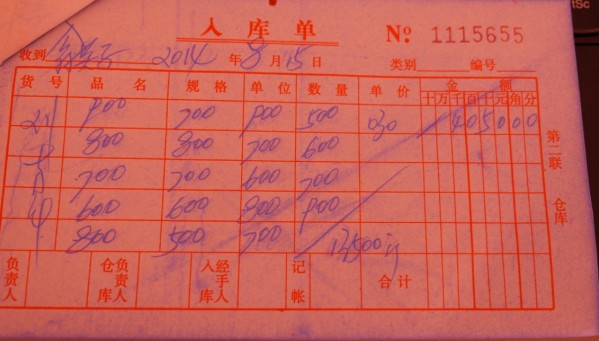 入库单 No 1115655
收到 2014 年 8 月 15 日 类别 编号
货号 品名 规格 单位 数量 单价 金额
十万千百十元角分
900 700 900 500 030 405000
800 800 700 600
700 700 600 700
600 600 800 900
800 500 700 13500
第二联 仓库
负责人 仓库负责人 入库经手人 记帐 合计